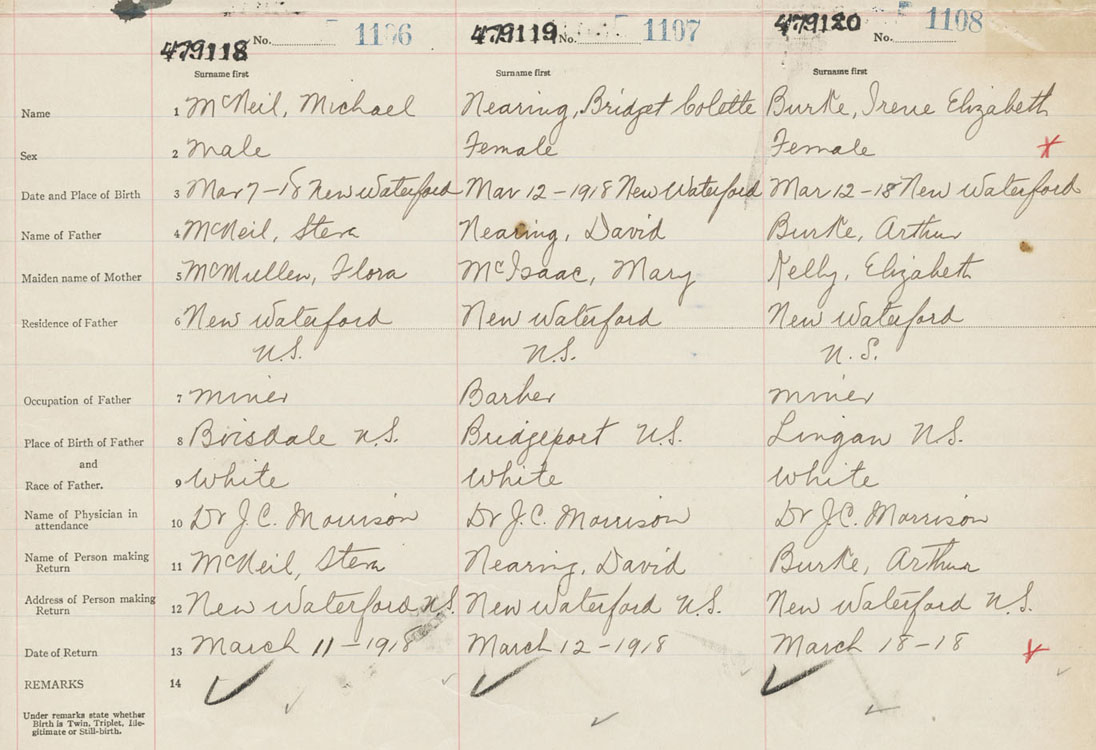 479118 No. 1106 479119 No. 1107 479120 No. 1108
Surname first Surname first Surname first
Name 1 McNeil, Michael Nearing, Bridget Colette Burke, Irene Elizabeth
Sex 2 male Female Female
Date and Place of Birth 3 Mar 7-18 New Waterford Mar 12-1918 New Waterford Mar 12-18 New Waterford
Name of Father 4 McNeil, Nearing, David Burke, Arthur
Maiden name of Mother 5 McMullen, Flora McIsaac, Mary Kelly, Elizabeth
Residence of Father 6 New Waterford New Waterford New Waterford
N.S. N.S. N.S.
Occupation of Father 7 miner Barber miner
Place of Birth of Father 8 Boisdale N.S. Bridgeport N.S. Lingan N.S.
and
Race of Father. 9 White White White
Name of Physician in attendance 10 Dr J.C. Morrison Dr J.C. Morrison Dr J.C. Morrison
Name of Person making Return 11 McNeil, Nearing, David Burke, Arthur
Address of Person making Return 12 New Waterford N.S. New Waterford N.S. New Waterford N.S.
Date of Return 13 March 11-1918 March 12-1918 March 18-18
REMARKS 14
Under remarks state whether
Birth is Twin, Triplet, Ille-
gitimate or Still-birth.